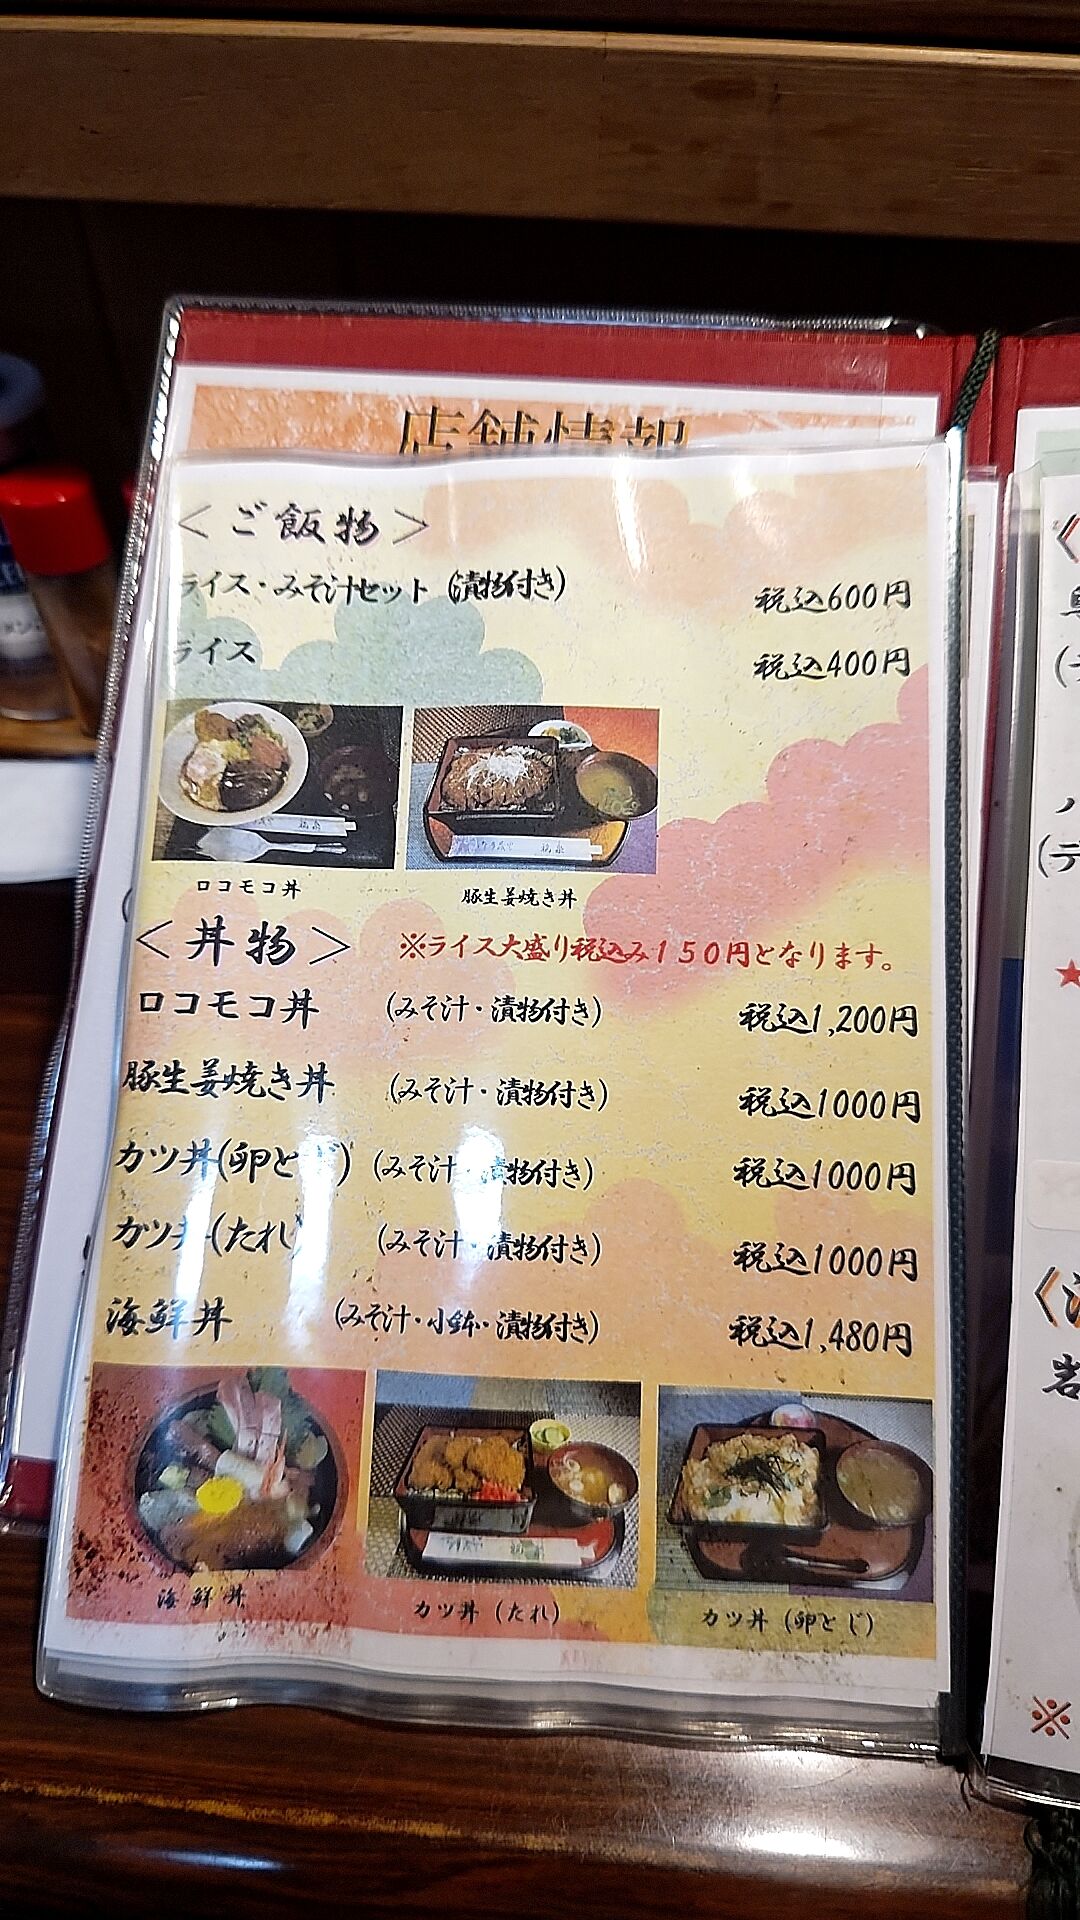 店舗情報
＜ご飯物＞
ライス・みそ汁セット（漬物付き） 税込600円
ライス 税込400円
ロコモコ丼 豚生姜焼き丼
＜丼物＞ ※ライス大盛り税込み150円となります。
ロコモコ丼 （みそ汁・漬物付き） 税込1,200円
豚生姜焼き丼 （みそ汁・漬物付き） 税込1000円
カツ丼（卵とじ） （みそ汁・漬物付き） 税込1000円
カツ丼（たれ） （みそ汁・漬物付き） 税込1000円
海鮮丼 （みそ汁・小鉢・漬物付き） 税込1,480円
海鮮丼 カツ丼（たれ） カツ丼（卵とじ）